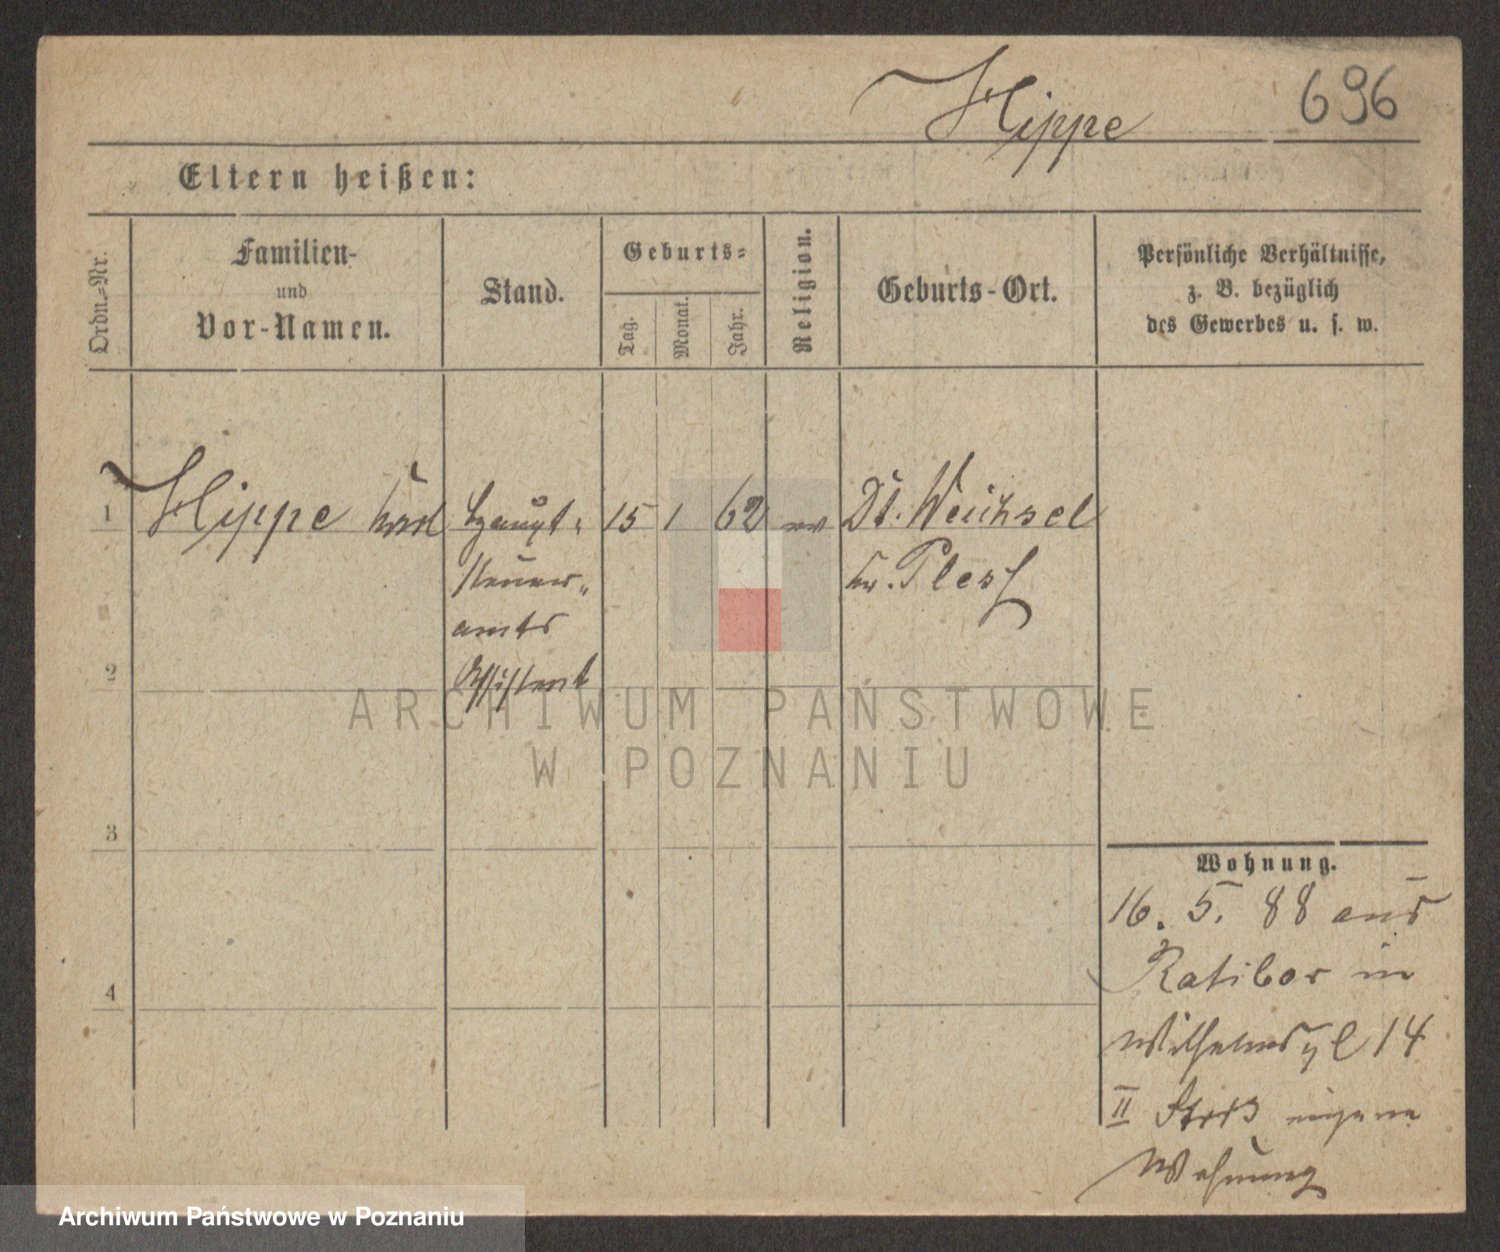 Hippe 696
Eltern heißen:
Ordn.-Nr.
Familien-
und
Vor-Namen.
Stand.
Geburts-
Tag.
Monat.
Jahr.
Religion.
Geburts-Ort.
Persönliche Verhältnisse,
z. B. bezüglich
des Gewerbes u. s. w.
1 Hippe Haupt- 15 1 62 ev Dt. Weichsel
steuer-
Kr. Pless
amts
Assistent
2
3
4
Wohnung.
16. 5. 88 aus
Ratibor in
Wilhelmspl 14
II eigene
Wohnung
ARCHIWUM PAŃSTWOWE
W POZNANIU
Archiwum Państwowe w Poznaniu